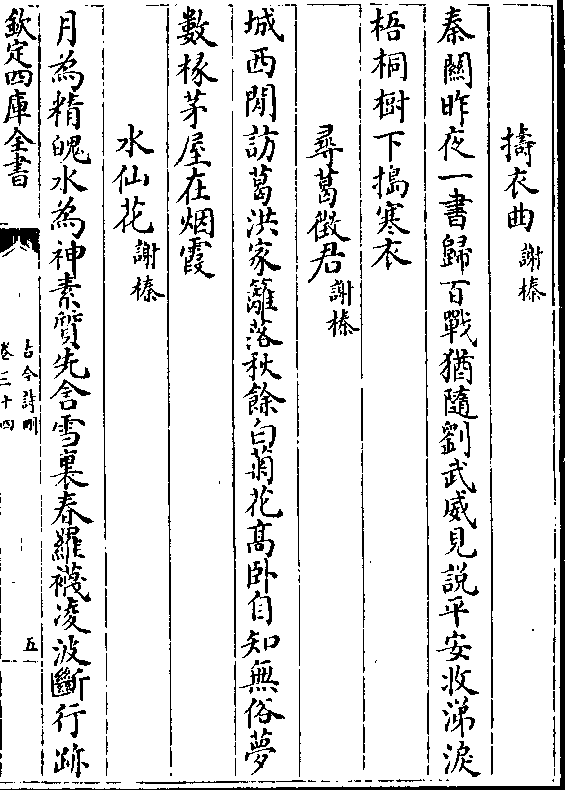 擣衣曲 謝榛
秦關昨夜一書歸百戰猶隨劉武威見說平安收涕淚
梧桐樹下搗寒衣
尋葛徵君 謝榛
城西閒訪葛洪家籬落秋餘白菊花髙卧自知無俗夢
數椽茅屋在烟霞
水仙花 謝榛
月為精魄水為神素質先含雪裏春羅襪凌波斷行跡
欽定四庫全書
古今詩刪
卷三十四
五